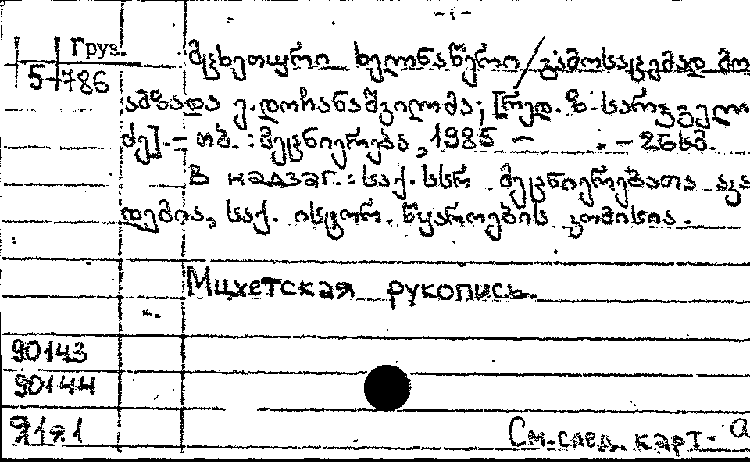 - 1 -
Груз.
5-786
მცხეთური ხელნაწერი / გამოსაცემად მო
ამზადა ე. დოჩანაშვილმა; [რედ. ზ. სარჯველა
ძე]. - თბ. : მეცნიერება, 1985 - . - 26სმ.
В надзаг.: საქ. სსრ მეცნიერებათა აკა
დემია, საქ. ისტორ. წყაროების კომისია.
Мцхетская рукопись.
90143
90144
Я1я1
См. след. карт.